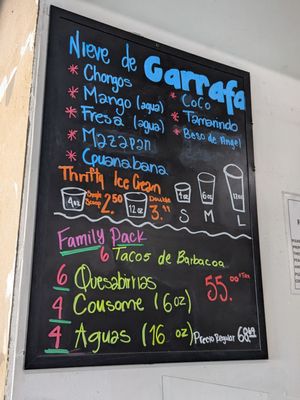 Nieve de Garrafa
* Chongos
* Mango (agua)
* Fresa (agua)
* Mazapan
* Guanabana
* Coco
* Tamarindo
* Beso de Angel
Thrifty Ice Cream
4oz Single Scoop 2.50 12 oz Double 3."
S M L
Family Pack
6 Tacos de Barbacoa
6 Quesabirrias
4 Cousome (16 oz)
4 Aguas (16 oz)
55.00 + Tax
Precio Regular